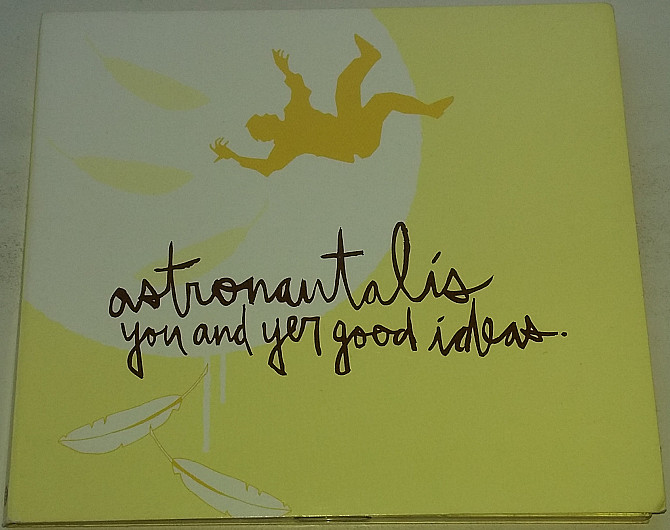 astronautalis
you and yer good ideas.